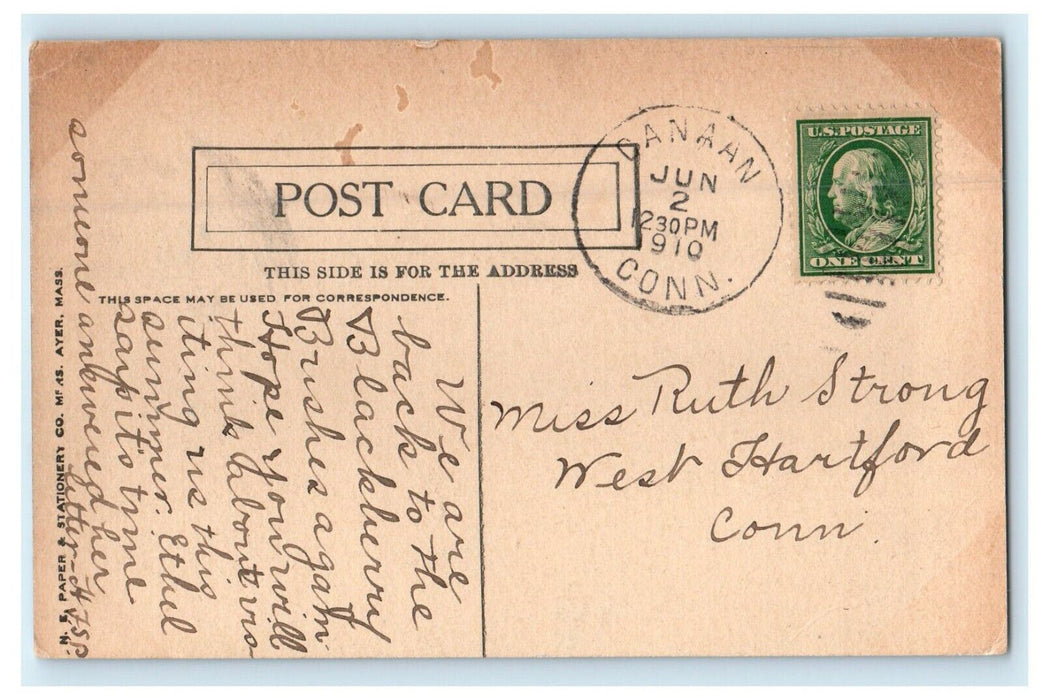 POST CARD
THIS SIDE IS FOR THE ADDRESS
CANAAN
JUN
2
1230PM
1910
CONN.
U.S. POSTAGE
ONE CENT
THIS SPACE MAY BE USED FOR CORRESPONDENCE.
N. E. PAPER & STATIONERY CO. MFRS. AYER, MASS.
We are
back to the
Blackberry
Brushes again
Hope you will
think about vis
iting us this
summer. Ethel
says its time
someone answered her
letter-
Miss Ruth Strong
West Hartford
Conn.